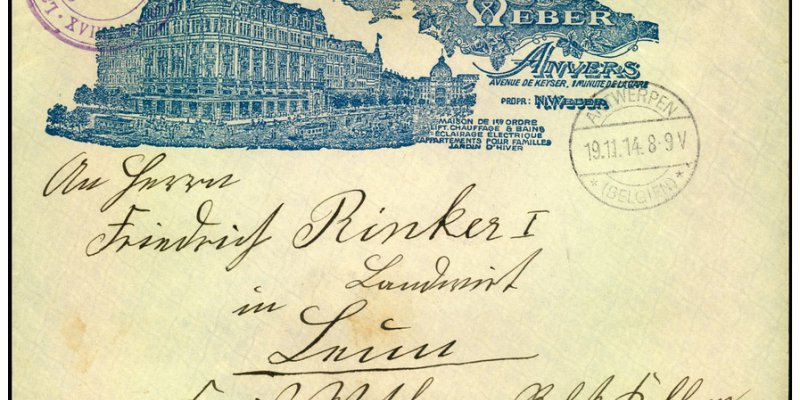 WEBER
ANVERS
AVENUE DE KEYSER, 1 MINUTE DE LA GARE
PROPR: N. WEBER
MAISON DE 1ER ORDRE
LIFT. CHAUFFAGE & BAINS
ECLAIRAGE ÉLECTRIQUE
APPARTEMENTS POUR FAMILLES
JARDIN D'HIVER
XVII
ANTWERPEN
19.11.14. 8-9 V
* (BELGIEN) *
An Herrn
Friedrich Rinker I
Landwirt
in
Leun